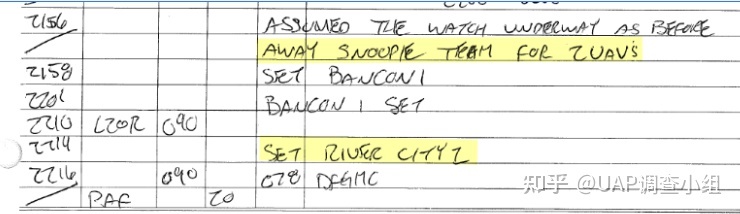 2156 ASSUMED THE WATCH UNDERWAY AS BEFORE
/ AWAY SNOOPIE TEAM FOR 2UAV'S
2158 SET BANCON 1
2201 BANCON 1 SET
2210 L20R 090
2214 SET RIVER CITY 2
2216 090 078 DFGMC
/ RAF 20
知乎 @UAP调查小组